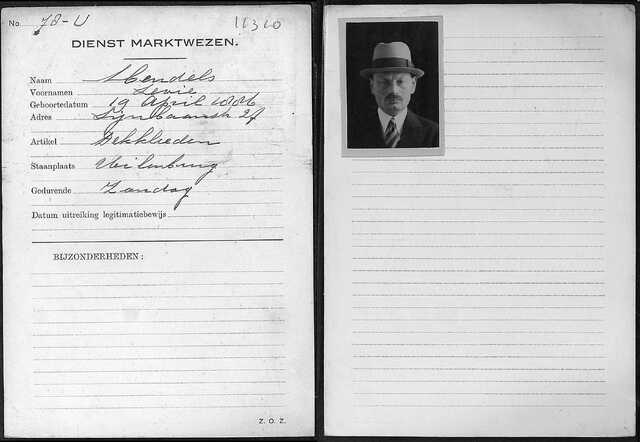 No. 78-U 11310
DIENST MARKTWEZEN.
Naam Mendels
Voornamen Levie
Geboortedatum 19 April 1886
Adres Lijnbaanstr 27
Artikel Dekkleeden
Staanplaats Uilenburg
Gedurende Zondag
Datum uitreiking legitimatiebewijs
BIJZONDERHEDEN:
Z. O. Z.